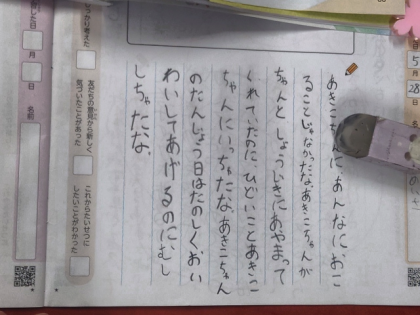 あきこちゃんに あんなにおこ
ることじゃなかったな。あきこちゃんが
ちゃんと しょうじきにあやまって
くれていたのに、ひどいことあきこ
ちゃんにいっちゃたな。あきこちゃん
のたんじょう日はたのしくおい
わいしてあげるのに、むし
しちゃたな。
友だちの意見から新しく
気づいたことがあった
これからたいせつに
したいことがわかった
しっかり考えた
した日
月
日
名前
5
月
28